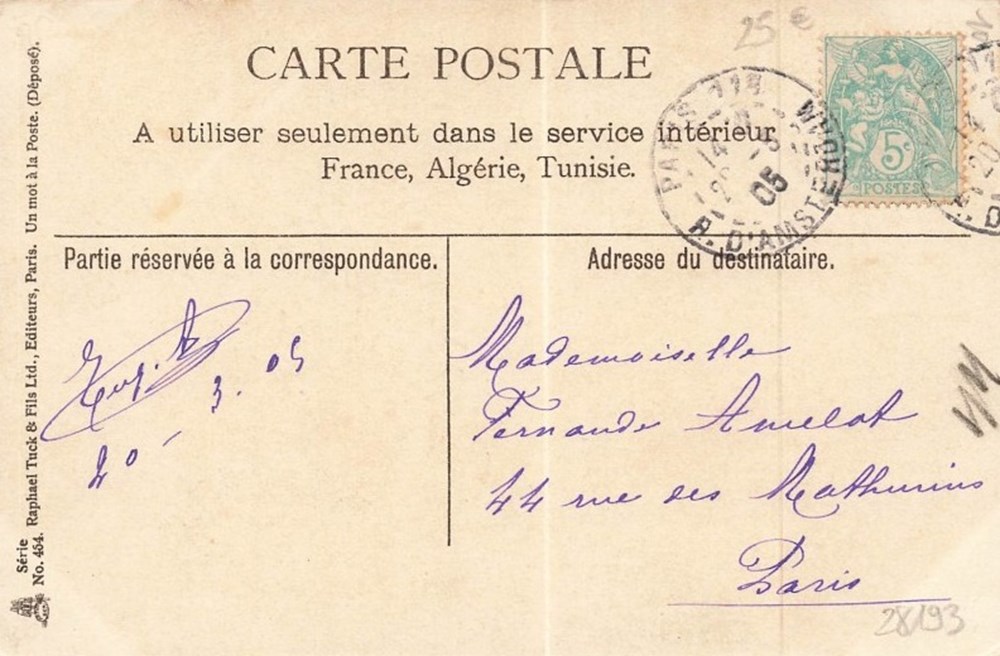 25 €
CARTE POSTALE
A utiliser seulement dans le service intérieur
France, Algérie, Tunisie.
PARIS
R. D'AMSTERDAM
05
5c
POSTES
Partie réservée à la correspondance.
Adresse du destinataire.
20 - 3. 05
Mademoiselle
Fernande Amelot
44 rue des Mathurins
Paris
28193
Série
No. 454. Raphael Tuck & Fils Ltd., Editeurs, Paris. Un mot à la Poste. (Déposé).